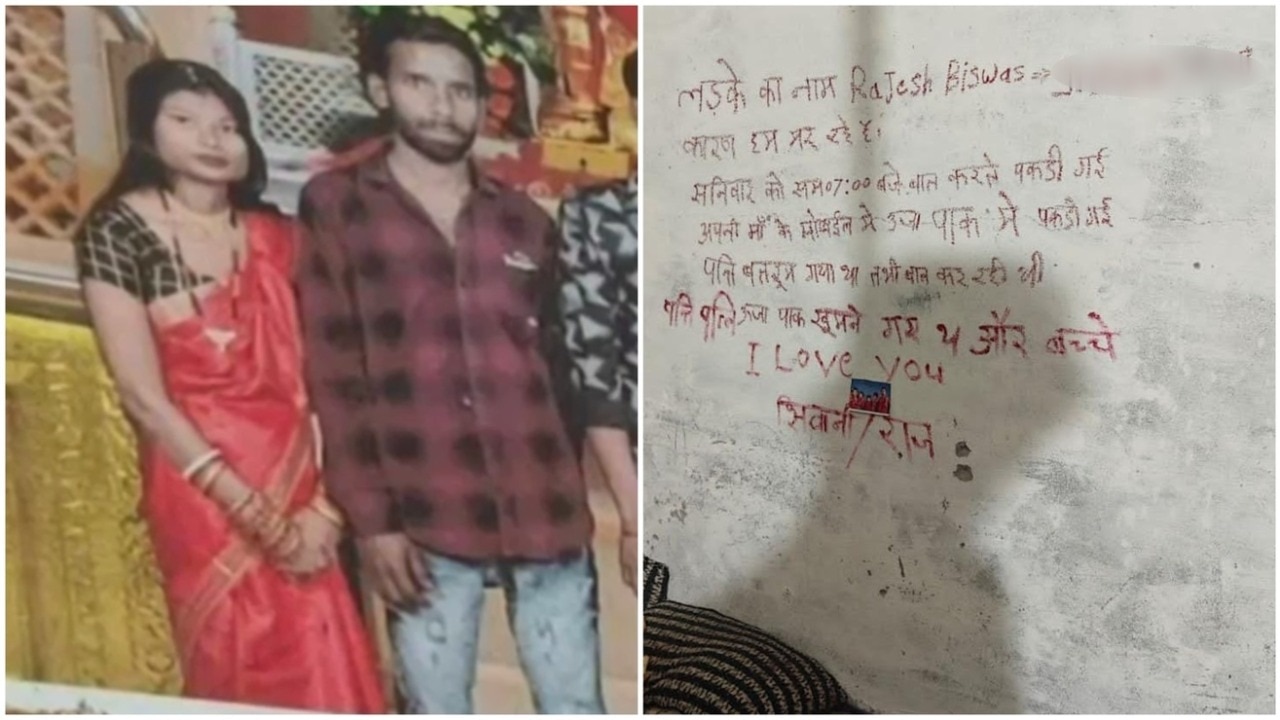 लड़के का नाम Rajesh Biswas =>
कारण हम मर रहे है।
सनिवार को सम07:00 बजे बात करते पकडी गई
अपनी माँ के मोबाईल मे उर्जा पाक मे पकडी गई
पति बतरूम गया था तभी बात कर रही थी
पति पत्नि उर्जा पाक खुमने गए थ और बच्चे
I Love You
सिवानी/राज